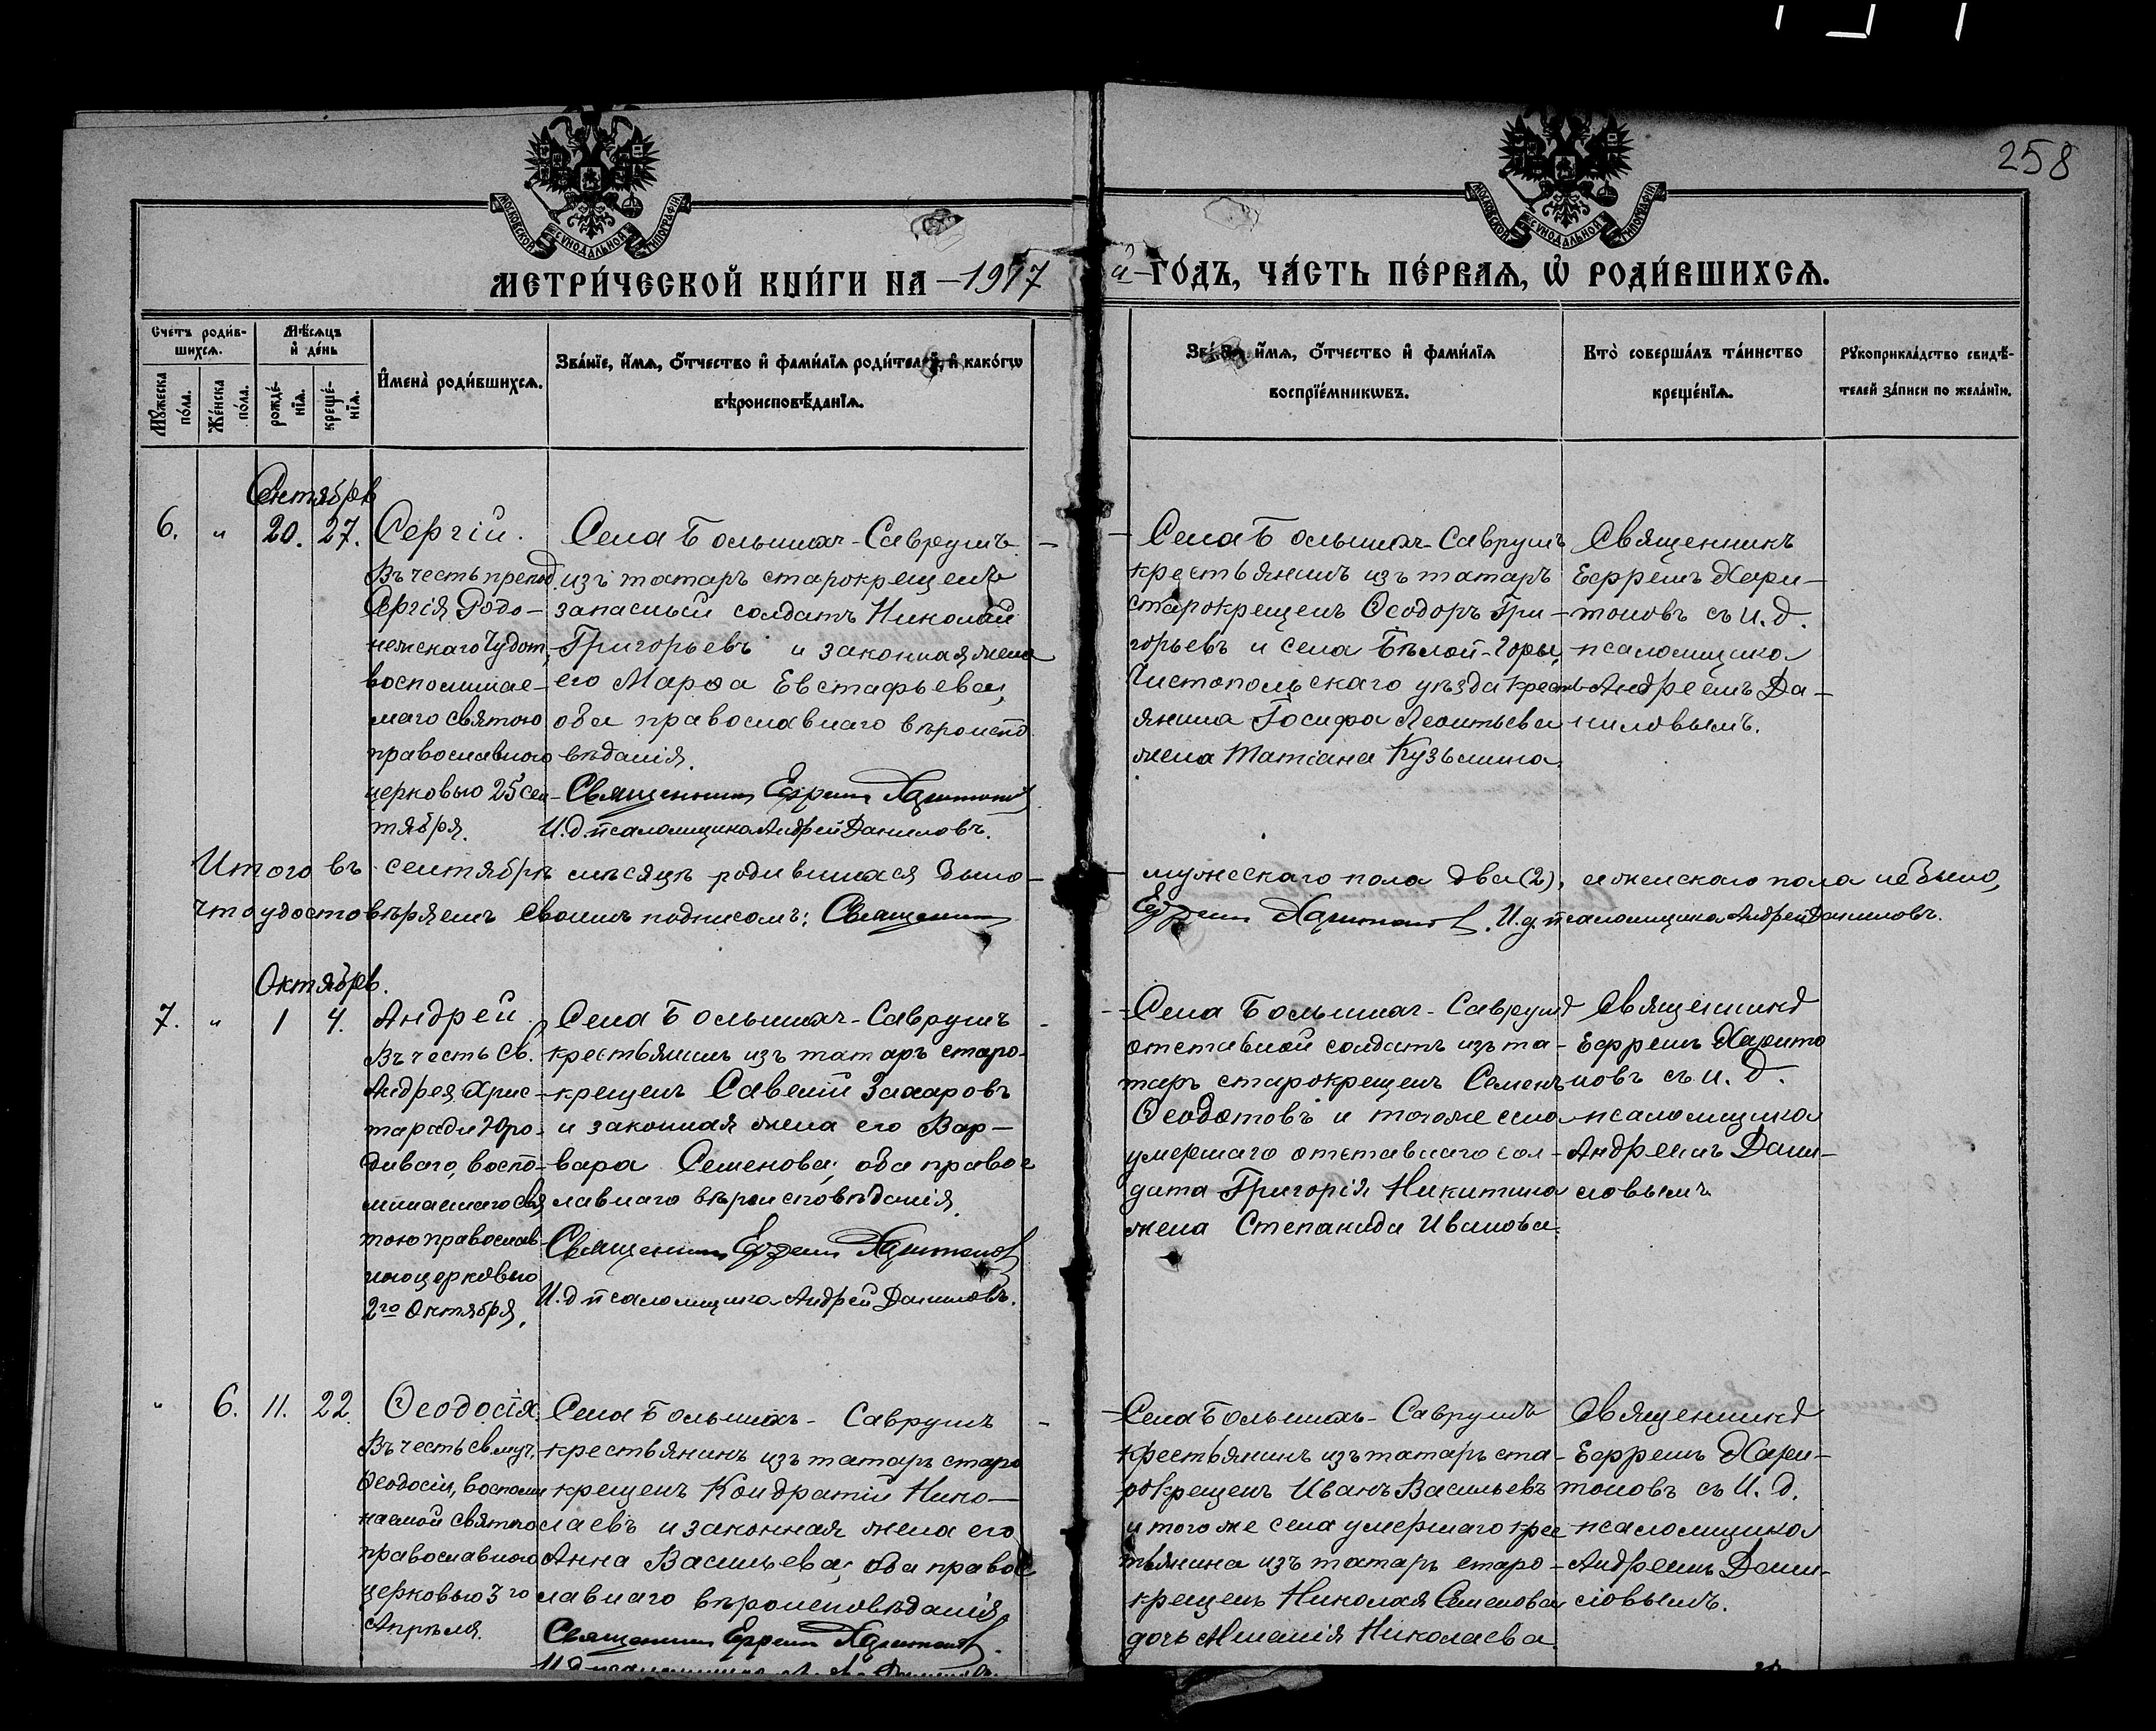 258
МОСКОВСКОЙ СѴНОДАЛЬНОЙ ТИПОГРАФІИ
МОСКОВСКОЙ СѴНОДАЛЬНОЙ ТИПОГРАФІИ
МЕТРИ́ЧЕСКОЙ КНИ́ГИ НА –1917
й– ГО́ДЪ, ЧА́СТЬ ПЕ́РВАѦ, Ѡ҆ РОДИ́ВШИХСѦ.
Сче́тъ роди́в-
шихсѧ.
Мѣ́сѧцъ
и҆ де́нь
Мꙋ́жеска
по́ла.
Же́нска
по́ла.
рожде́-
нїѧ.
креще́-
нїѧ.
И҆мена̀ роди́вшихсѧ.
Зва́нїе, и҆́мѧ, ѻ҆́тчество и҆ фами́лїѧ роди́телей, и҆ како́гѡ
вѣроисповѣ́данїѧ.
Зва́нїе, и҆́мѧ, ѻ҆́тчество и҆ фами́лїѧ
воспрїе́мникѡвъ.
Кто̀ соверша́лъ та́инство
креще́нїѧ.
Рꙋкоприкла́дство свидѣ́-
телей за́писи по жела́нїю.
Сентябрь
6. " 20. 27. Сергій.
Въ честь препод.
Сергія Радо-
нежскаго Чудот.,
воспоминае-
маго святою
православною
церковью 25 сен-
тября.
Села Большихъ-Саврушъ
изъ татаръ старокрещенъ
запасный солдатъ Николай
Григорьевъ и законная жена
его Марѳа Евстафьева,
оба православнаго вѣроиспо
вѣданія.
Священникъ Ефремъ Харитоновъ
И. д. псаломщика Андрей Даниловъ.
Села Большихъ-Саврушъ
крестьянинъ изъ татаръ
старокрещенъ Ѳеодоръ Гри-
горьевъ и села Бѣлой-Горы,
Чистопольскаго уѣзда крест
янина Іосифа Леонтьева
жена Татіана Кузьмина.
Священникъ
Ефремъ Хари-
тоновъ съ и. д.
псаломщика
Андреемъ Да-
ниловымъ.
Итого въ сентябрѣ мѣсяцѣ родившихся было- мужескаго пола два (2), а женскаго пола не было,
что удостовѣряемъ своимъ подписомъ: Священникъ Ефремъ Харитоновъ. И. д. псаломщика Андрей Даниловъ.
Октябрь.
7. " 1 4. Андрей.
Въ честь Св.
Андрея Хрис-
та ради Юро-
диваго, воспо-
минаемаго свя
тою православ-
ною церковью
2го Октября.
Села Большихъ-Саврушъ
крестьянинъ изъ татаръ старо-
крещенъ Савелій Захаровъ
и законная жена его Вар-
вара Семенова; оба правос
лавнаго вѣроисповѣданія.
Священникъ Ефремъ Харитоновъ
И. д. псаломщика Андрей Даниловъ.
Села Большихъ-Саврушъ
отставной солдатъ изъ та-
таръ старокрещенъ Семенъ
Ѳеодотовъ и того же села
умершаго отставнаго сол-
дата Григорія Никитина
жена Степанида Иванова.
Священникъ
Ефремъ Харито
новъ съ и. д.
псаломщика
Андреемъ Дани-
ловымъ
" 6. 11. 22. Ѳеодосія.
Въ честь св. муч.
Ѳеодосіи, воспоми
наемой святою
православною
церковью 3го
Апрѣля.
Села Большихъ- Саврушъ
крестьянинъ изъ татаръ старо
крещенъ Кондратій Нико-
лаевъ и законная жена его
Анна Васильева; оба правос
лавнаго вѣроисповѣданія.
Священникъ Ефремъ Харитоновъ.
И. д. псаломщика Андрей Даниловъ.
Села Большихъ- Саврушъ
крестьянинъ изъ татаръ ста-
рокрещенъ Иванъ Васильевъ
и того же села умершаго крес
тьянина изъ татаръ старо-
крещенъ Николая Семенова
дочь Николаева.
Священникъ
Ефремъ Хари-
тоновъ съ И. д.
псаломщика
Андреемъ Дани-
ловымъ.